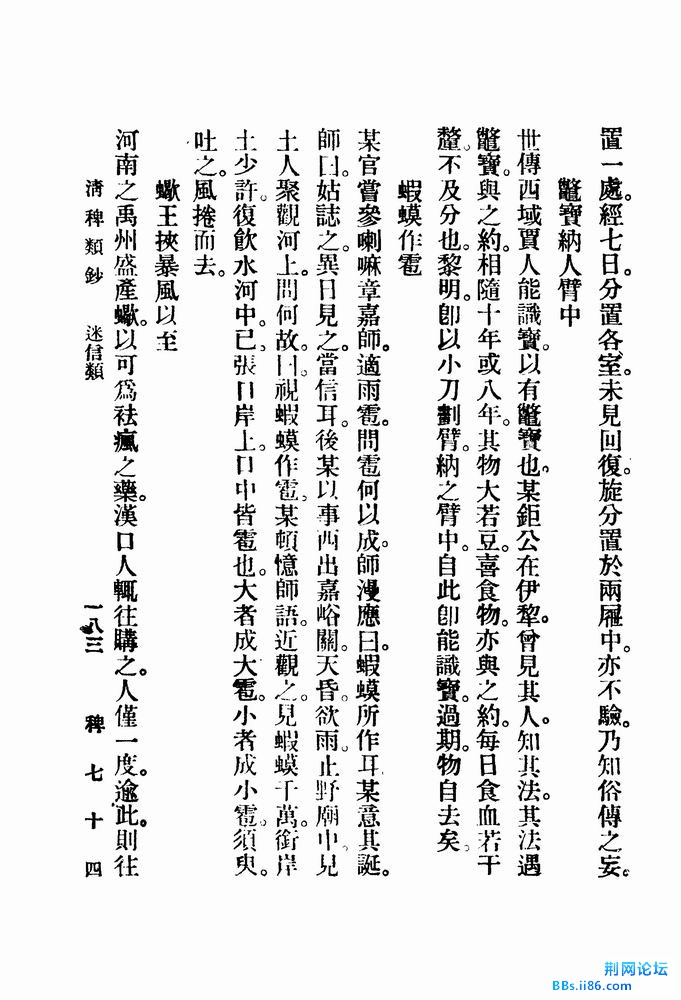 置一處。經七日。分置各室。未見回復。旋分置於兩屜中。亦不驗。乃知俗傳之妄。
鼈寶納人臂中
世傳西域賈人能識寶。以有鼈寶也。某鉅公在伊犂。曾見其人。知其法。其法遇
鼈寶。與之約。相隨十年或八年。其物大若豆。喜食物。亦與之約。每日食血若干
釐。不及分也。黎明。卽以小刀劃臂。納之臂中。自此卽能識寶。過期。物自去矣。
蝦蟆作雹
某官嘗參喇嘛章嘉師。適雨雹。問雹何以成。師漫應曰。蝦蟆所作耳。某意其誕。
師曰。姑誌之。異日見之。當信耳。後某以事西出嘉峪關。天昏欲雨。止野廟中。見
土人聚觀河上。問何故。曰。視蝦蟆作雹。某頓憶師語。近觀之。見蝦蟆千萬。銜岸
土少許。復飮水河中。已。張口岸上。口中皆雹也。大者成大雹。小者成小雹。須臾
吐之。風捲而去。
蠍王挾暴風以至
河南之禹州盛產蠍。以可爲祛瘋之藥。漢口人輒往購之。人僅一度。逾此。則往
淸稗類鈔 迷信類 一八三 稗七十四
荆网论坛
BBs.ii86.com